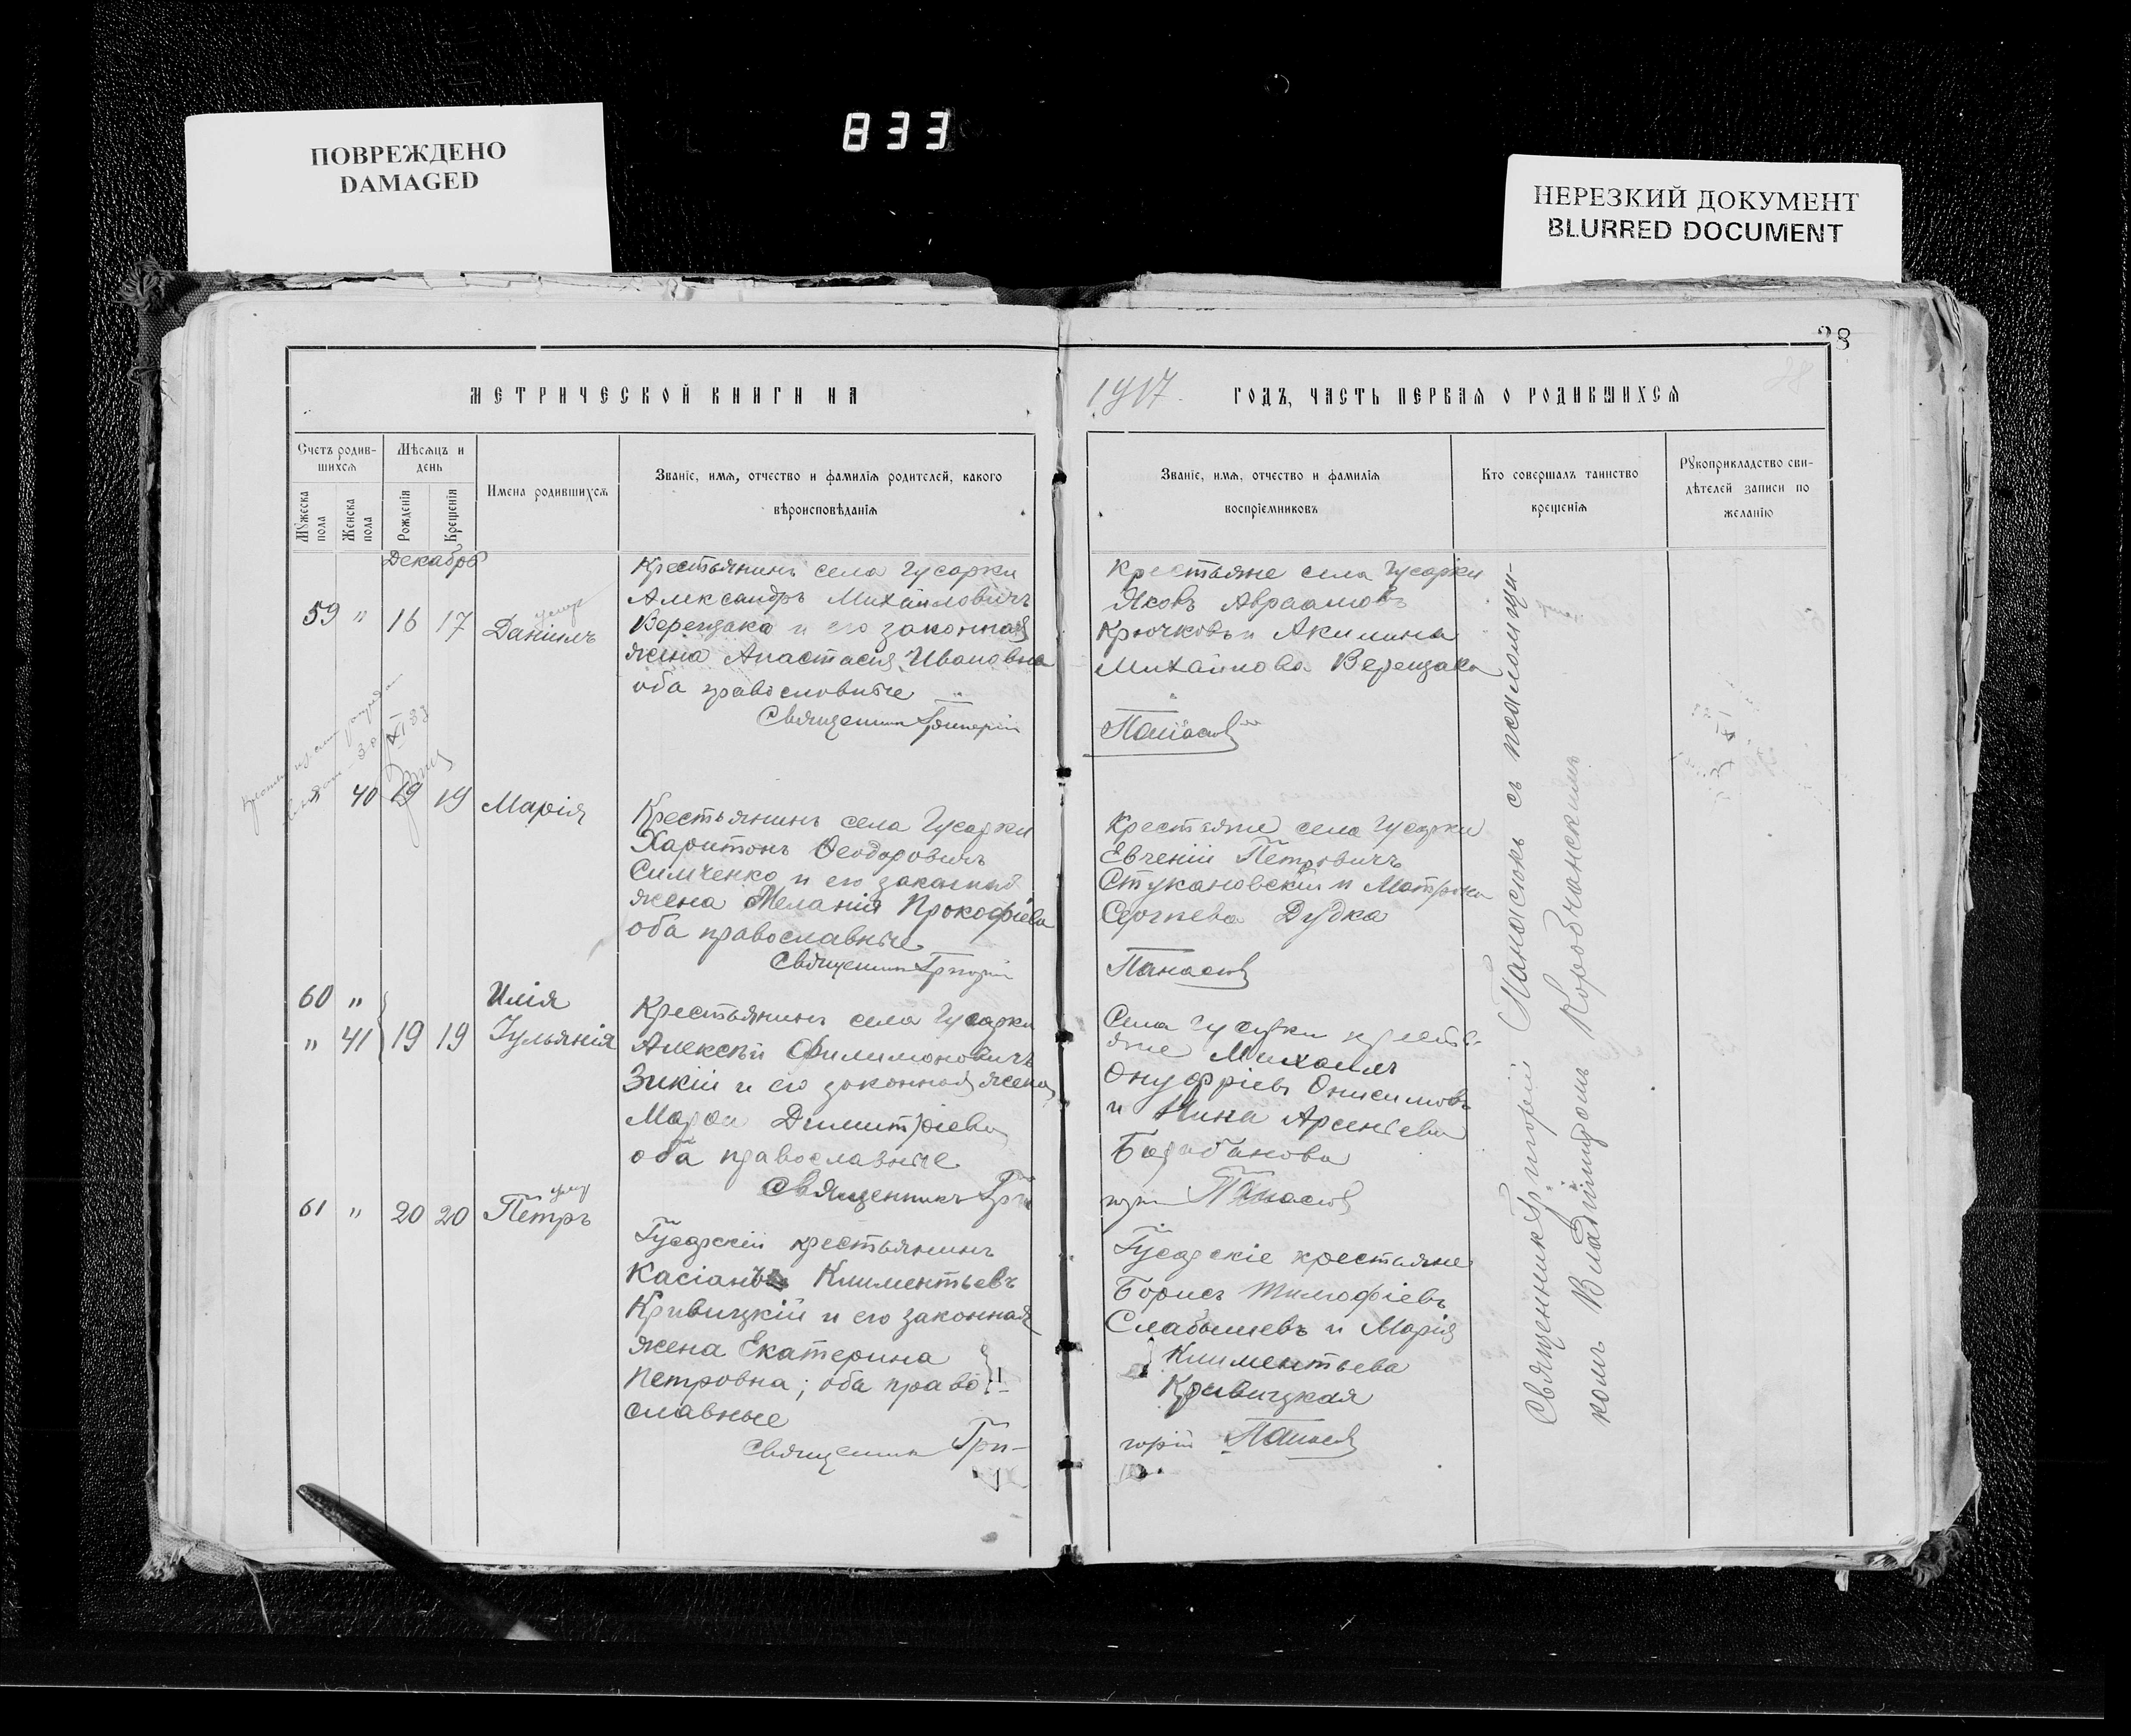 ПОВРЕЖДЕНО
DAMAGED
833
НЕРЕЗКИЙ ДОКУМЕНТ
BLURRED DOCUMENT
28
МЕТРИЧЕСКОЙ КНИГИ НА
1917 ГОДЪ, ЧАСТЬ ПЕРВАЯ О РОДИВШИХСЯ
Счетъ родив-
шихся
Мужеска пола
Женска пола
Мѣсяцъ и
день
Рожденія
Крещенія
Имена родившихся
Званіе, имя, отчество и фамилія родителей, какого
вѣроисповѣданія
Званіе, имя, отчество и фамилія
воспріемниковъ
Кто совершалъ таинство
крещенія
Рукоприкладство сви-
дѣтелей записи по
желанію
Декабрь
59 " 16 17 Даніилъ
умеръ
Крестьянинъ села Гусарки
Александръ Михайловичъ
Верещака и его законная
жена Анастасія Ивановна
оба православные
Священникъ Григорій
Крестьяне села Гусарки
Яковъ Авраамовъ
Крючковъ и Акилина
Михайлова Верещака
Панасюкъ
40 19 19 Марія
Крестьянинъ села Гусарки
Харитонъ Ѳеодоровичъ
Симченко и его законная
жена Меланія Прокофіева
оба православные
Священникъ Григорій
Крестьяне села Гусарки
Евгеній Петровичъ
Стукановскій и Матрона
Сергѣева Дудка
Панасюкъ
60 " Илія
" 41 19 19 Іульянія
Крестьянинъ села Гусарки
Алексѣй Филимоновичъ
Зикій и его законная жена
Марѳа Димитріева
оба православные
Священникъ Гри
Села Гусарки крестья-
яне Михаилъ
Онуфріевъ Онисимовъ
и Нина Арсеніева
Барабанова
горій Панасюкъ
61 " 20 20 Петръ
умер
Гусарскій крестьянинъ
Касіанъ Климентьевъ
Кривицкій и его законная
жена Екатерина
Петровна; оба право
славные
Священникъ Гри-
Гусарскіе крестьяне
Борисъ Тимофіевъ
Слабышевъ и Марія
Климентьева
Кривицкая
горій Панасюкъ
Священникъ Григорій Панасюкъ съ псаломщи-
комъ Владиміромъ Коробчанскимъ